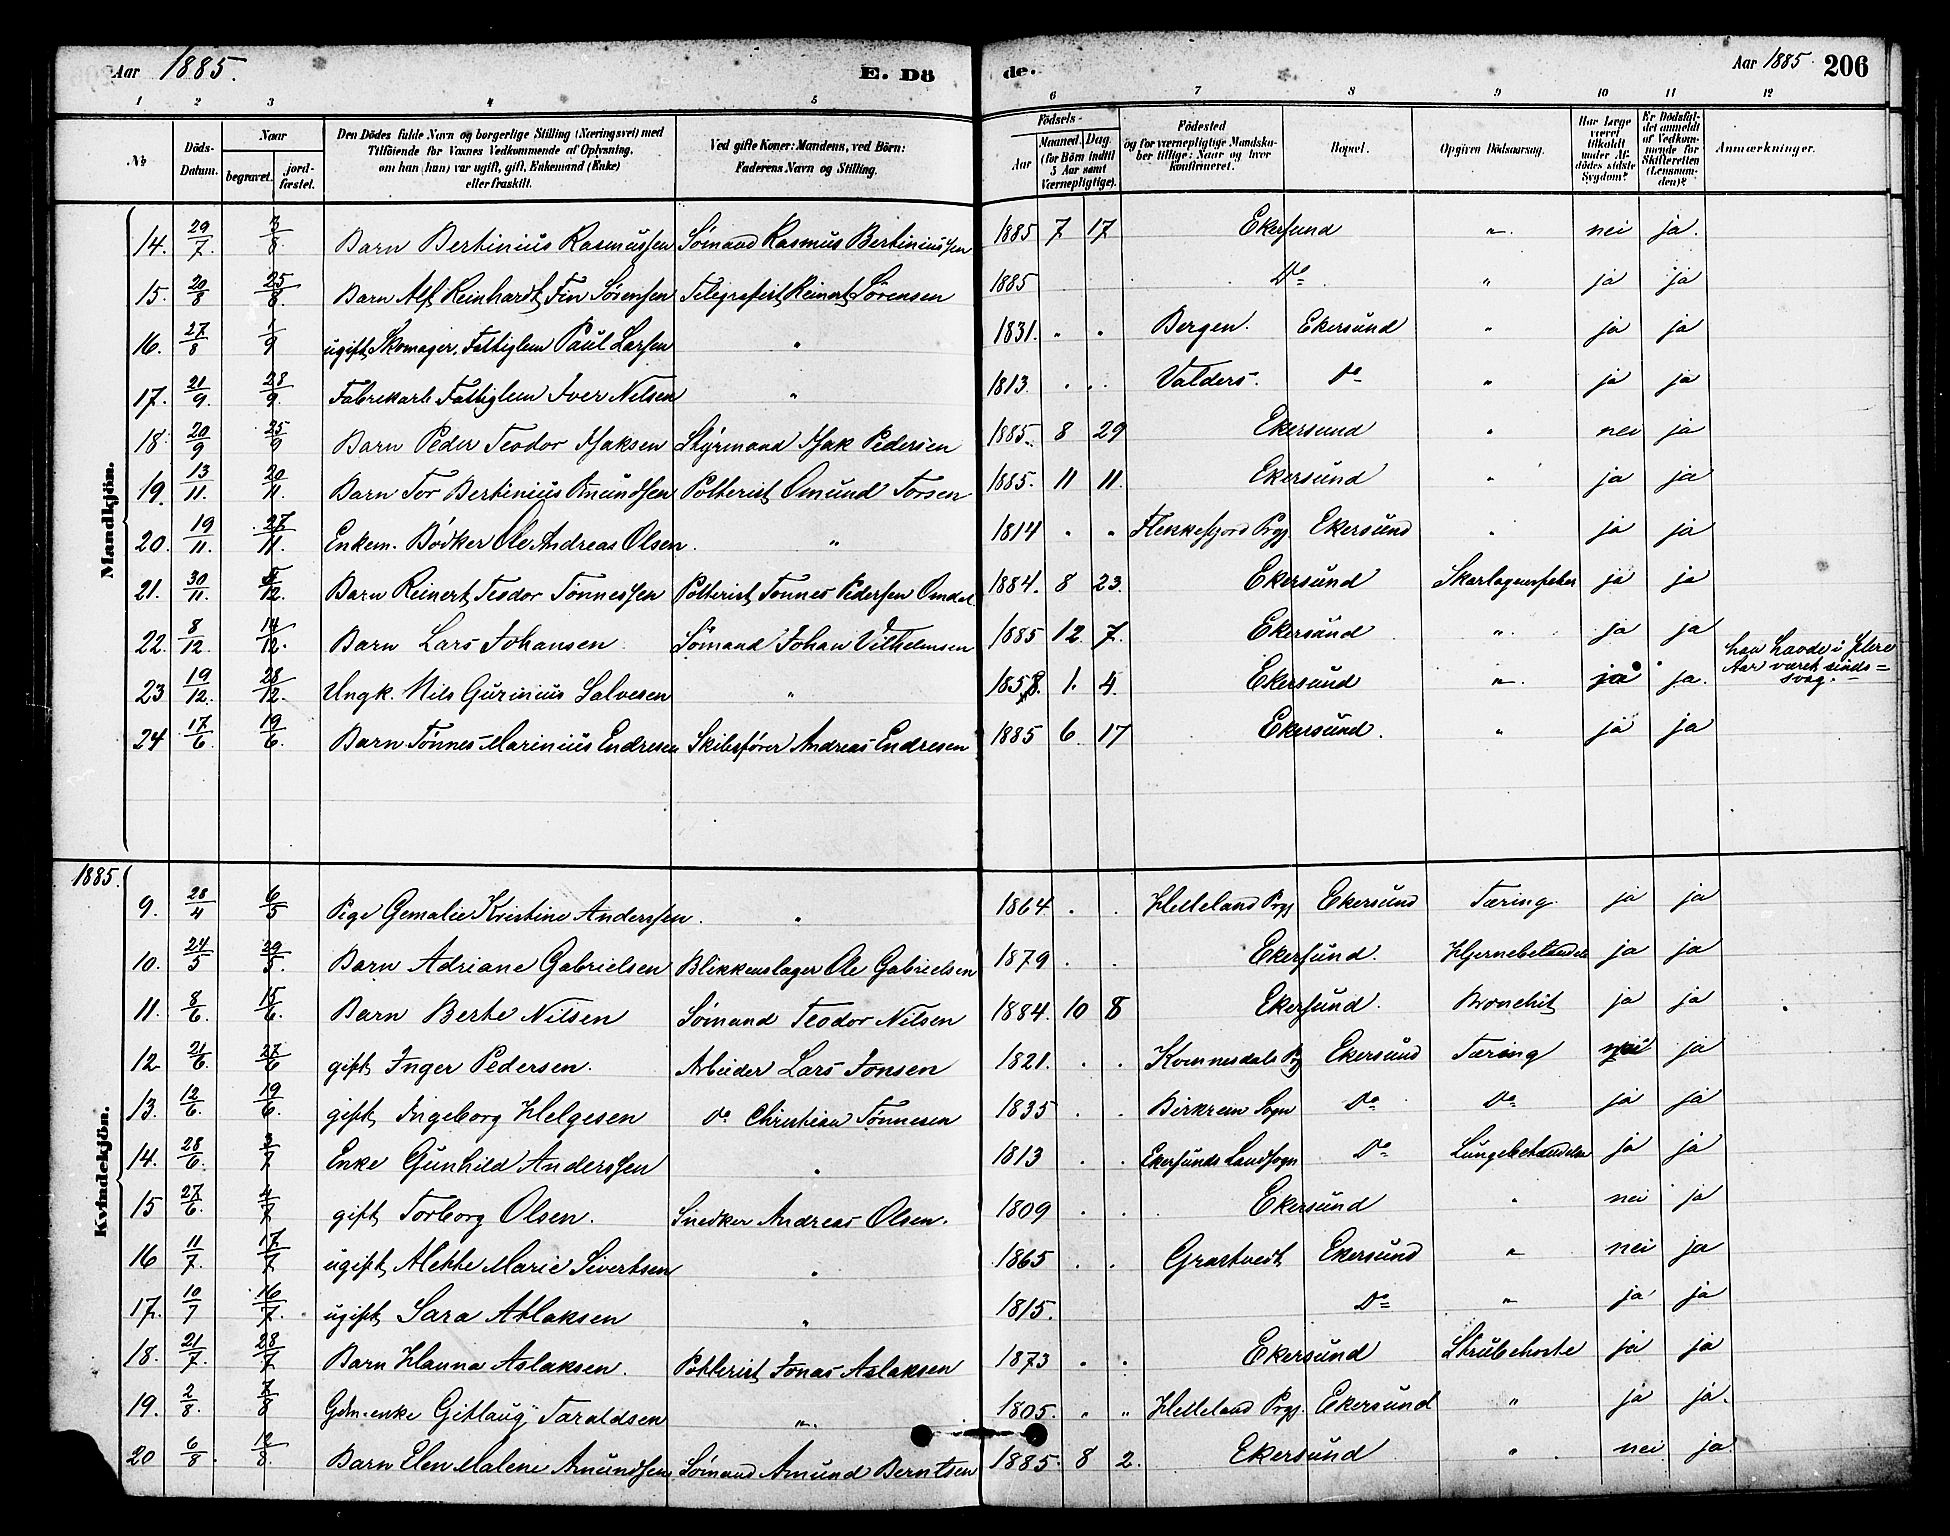 Aar 1885. E. Dö de. Aar 1885. 206
1 2 3 4 5 6 7 8 9 10 11 12
No Döds-Datum. Naar begravet. jord-fæstet. Den Dödes fulde Navn og borgerlige Stilling (Næringsvei) med Tilföiende for Voxnes Vedkommende af Oplysning, om han (hun) var ugift, gift, Enkemand (Enke) eller fraskilt. Ved gifte Koner: Mandens, ved Börn: Faderens Navn og Stilling. Födsels- Aar Maaned. Dag. (for Börn indtil 5 Aar samt Værnepligtige). Födested og for værnepligtige Mandskaber tillige: Naar og hvor konfirmeret. Bopæl. Opgiven Dödsaarsag. Har Læge været tilkaldt under Afdödes sidste Sygdom? Er Dödsfaldet anmeldt af Vedkommende for Skifteretten (Lensmanden)? Anmærkninger.
Mandkjön.
14. 29/7. 3/8. Barn Bertinius Rasmussen Sömand Rasmus Bertiniussen 1885 7 17 Ekersund " nei ja.
15. 20/8 25/8. Barn Alf Reinhardt Fin Sörensen Telegrafist Reinert Sörensen 1885 Do " ja ja
16. 27/8 1/9 ugift Skomager, Fattiglem Paul Larsen " 1831. " " Bergen. Ekersund " ja ja
17. 21/9. 28/9. Fabrekarb. Fattiglem Iver Nilsen " 1813 . . Valders. Do " ja ja
18. 20/9 25/9 Barn Peder Teodor Isaksen Styrmand Isak Pedersen 1885. 8 29 Ekersund " nei ja
19. 13/11. 20/11. Barn Tor Bertinius Omundsen Potterist Omund Torsen 1885. 11 11. Ekersund " ja ja
20. 19/11. 27/11. Enkem. Bödker Ole Andreas Olsen. " 1814 " " Flekkefjord Prgj Ekersund " ja ja
21. 30/11. 5/12. Barn Reinert Teodor Tönnessen Potterist Tönnes Pedersen Omdal 1884. 8 23. Ekersund Skarlagensfeber ja ja
22. 8/12. 14/12. Barn Lars Johansen Sömand Johan Vilhelmsen 1885 12. 7. Ekersund " ja ja
23 19/12. 28/12. Ungk. Nils Gurinius Salvesen " 1858. 1. 4. Ekersund " ja ja. han havde i flere Aar været sinds=svag.
24 17/6 19/6. Barn Tönnes Marinius Endresen Skibsförer Andreas Endresen 1885 6 17 Ekersund. " ja ja
1885.
Kvindekjön.
9. 28/4 6/5 Pige Gemalie Kristine Anderssen. " 1864 . . Helleland Prgj Ekersund Tæring. ja ja
10. 24/5 29/5. Barn Adriane Gabrielsen Blikkenslager Ole Gabrielsen 1879 . . Ekersund. Hjernebetændelse ja ja
11. 8/6. 15/6. Barn Berte Nilsen Sömand Teodor Nilsen 1884. 10 8 Ekersund. Bronchit ja ja
12 21/6. 27/6 gift Inger Pedersen. Arbeider Lars Jonsen 1821. . . Kvinnesdals Prgj Ekersund Tæring nei ja
13. 12/6. 19/6. gift Ingeborg Helgesen Do Christian Tönnesen 1835 . . Birkrem Sogn Do Do ja ja
14. 28/6. 3/7 Enke Gunhild Anderssen " 1813 . . Ekersunds Landsogn Do Lungebetændelse ja ja
15 27/6. 4/7 gift Torborg Olsen. Snedker Andreas Olsen. 1809 . . Ekersund " nei ja
16 11/7. 17/7 ugift Alette Marie Sivertsen " 1865 . . Grastvedt Ekersund " nei ja
17. 10/7 16/7. ugift Sara Atlaksen " 1815. Do " ja ja
18. 21/7. 28/7 Barn Hanna Aslaksen. Potterist Jonas Aslaksen 1873 . . Ekersund Strubehoste ja ja
19. 2/8. 7/8 Gdm.enke Gitlaug Taraldsen " 1805. " " Helleland Prgj. Ekersund " ja ja.
20 6/8. 12/8. Barn Elen Malene Amundsen Sömand Amund Berntsen 1885. 8 2. Ekersund " nei ja